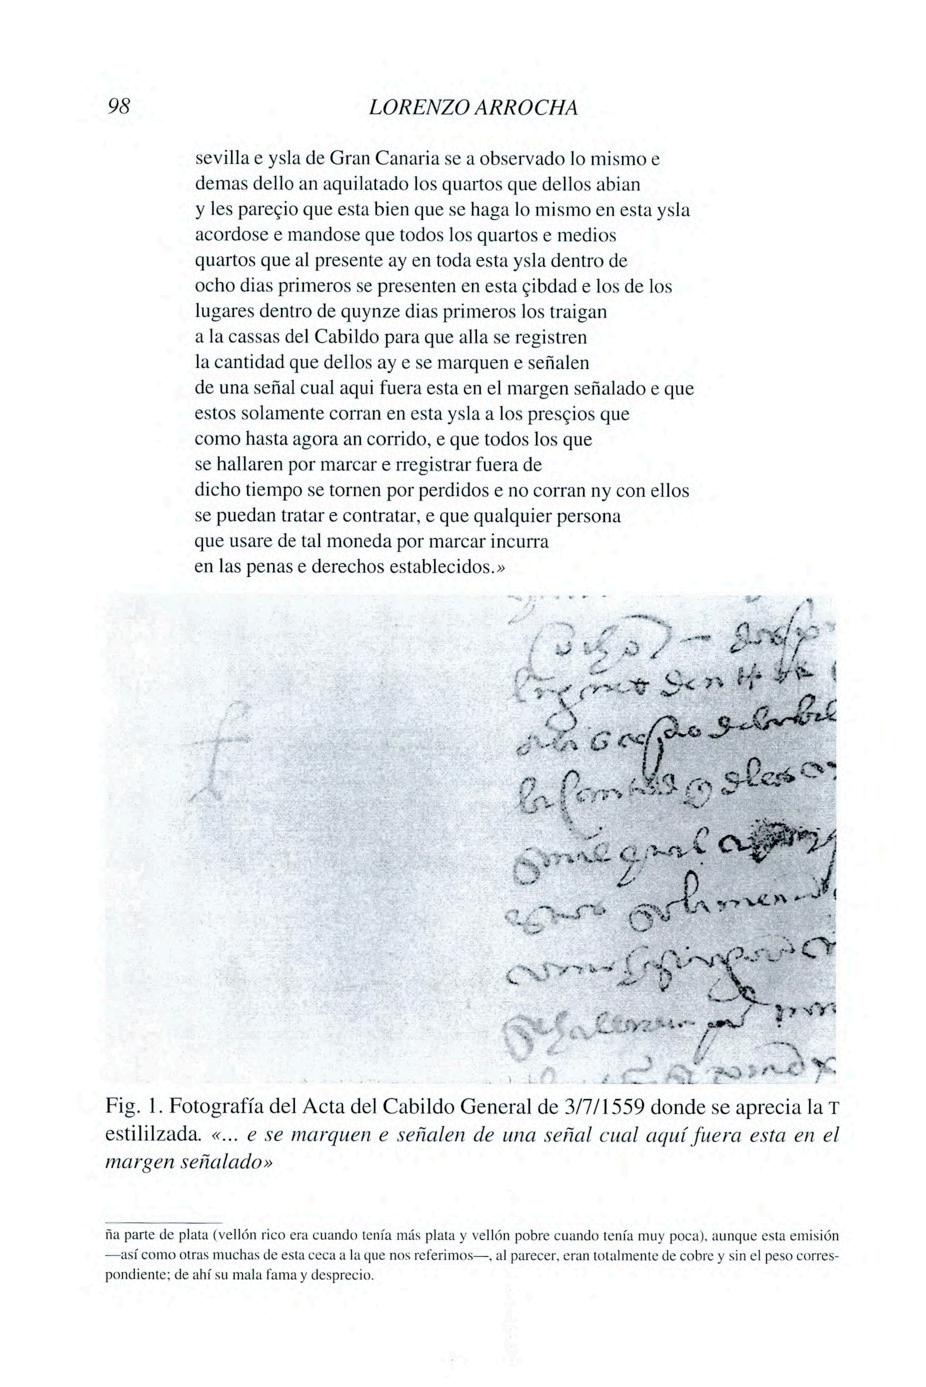 98 LORENZO ARROCHA
sevilla e ysla de Gran Canaria se a observado lo mismo e
demas dello an aquilatado los quartos que dellos abian
y les pareçio que esta bien que se haga lo mismo en esta ysla
acordose e mandose que todos los quartos e medios
quartos que al presente ay en toda esta ysla dentro de
ocho dias primeros se presenten en esta çibdad e los de los
lugares dentro de quynze dias primeros los traigan
a la cassas del Cabildo para que alla se registren
la cantidad que dellos ay e se marquen e señalen
de una señal cual aqui fuera esta en el margen señalado e que
estos solamente corran en esta ysla a los presçios que
como hasta agora an corrido, e que todos los que
se hallaren por marcar e rregistrar fuera de
dicho tiempo se tornen por perdidos e no corran ny con ellos
se puedan tratar e contratar, e que qualquier persona
que usare de tal moneda por marcar incurra
en las penas e derechos establecidos.»
Fig. 1. Fotografía del Acta del Cabildo General de 3/7/1559 donde se aprecia la T
estililzada. «... e se marquen e señalen de una señal cual aquí fuera esta en el
margen señalado»
ña parte de plata (vellón rico era cuando tenía más plata y vellón pobre cuando tenía muy poca), aunque esta emisión
—así como otras muchas de esta ceca a la que nos referimos—, al parecer, eran totalmente de cobre y sin el peso corres-
pondiente; de ahí su mala fama y desprecio.